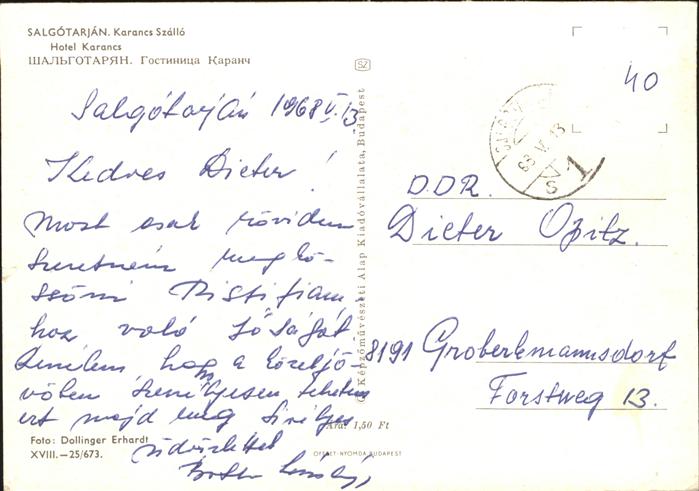 SALGÓTARJÁN. Karancs Szálló
Hotel Karancs
ШАЛЬГОТАРЯН. Гостиница Каранч
SZ
40
Salgótarján 1968 V. 13.
Kedves Dieter!
Most csak röviden
szeretném megkö-
szöni Kistifiam
hoz való jóságát
Remélem hogy a közeljö-
vöben személyesen tehetem
ezt majd meg Szivélyes
üdvözlettel
D.D.R.
Dieter Opitz.
8191 Groberkmannsdorf
Forstweg 13.
Képzőművészeti Alap Kiadóvállalata, Budapest
Ára: 1,50 Ft
Foto: Dollinger Erhardt
XVIII.—25/673.
OFFSET-NYOMDA BUDAPEST